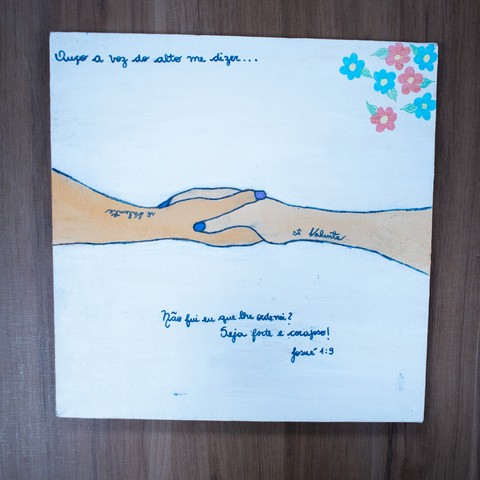 Ouço a voz do alto me dizer...
sê Valente
sê Valente
Não fui eu que lhe ordenei?
Seja forte e corajoso!
Josué 1:9